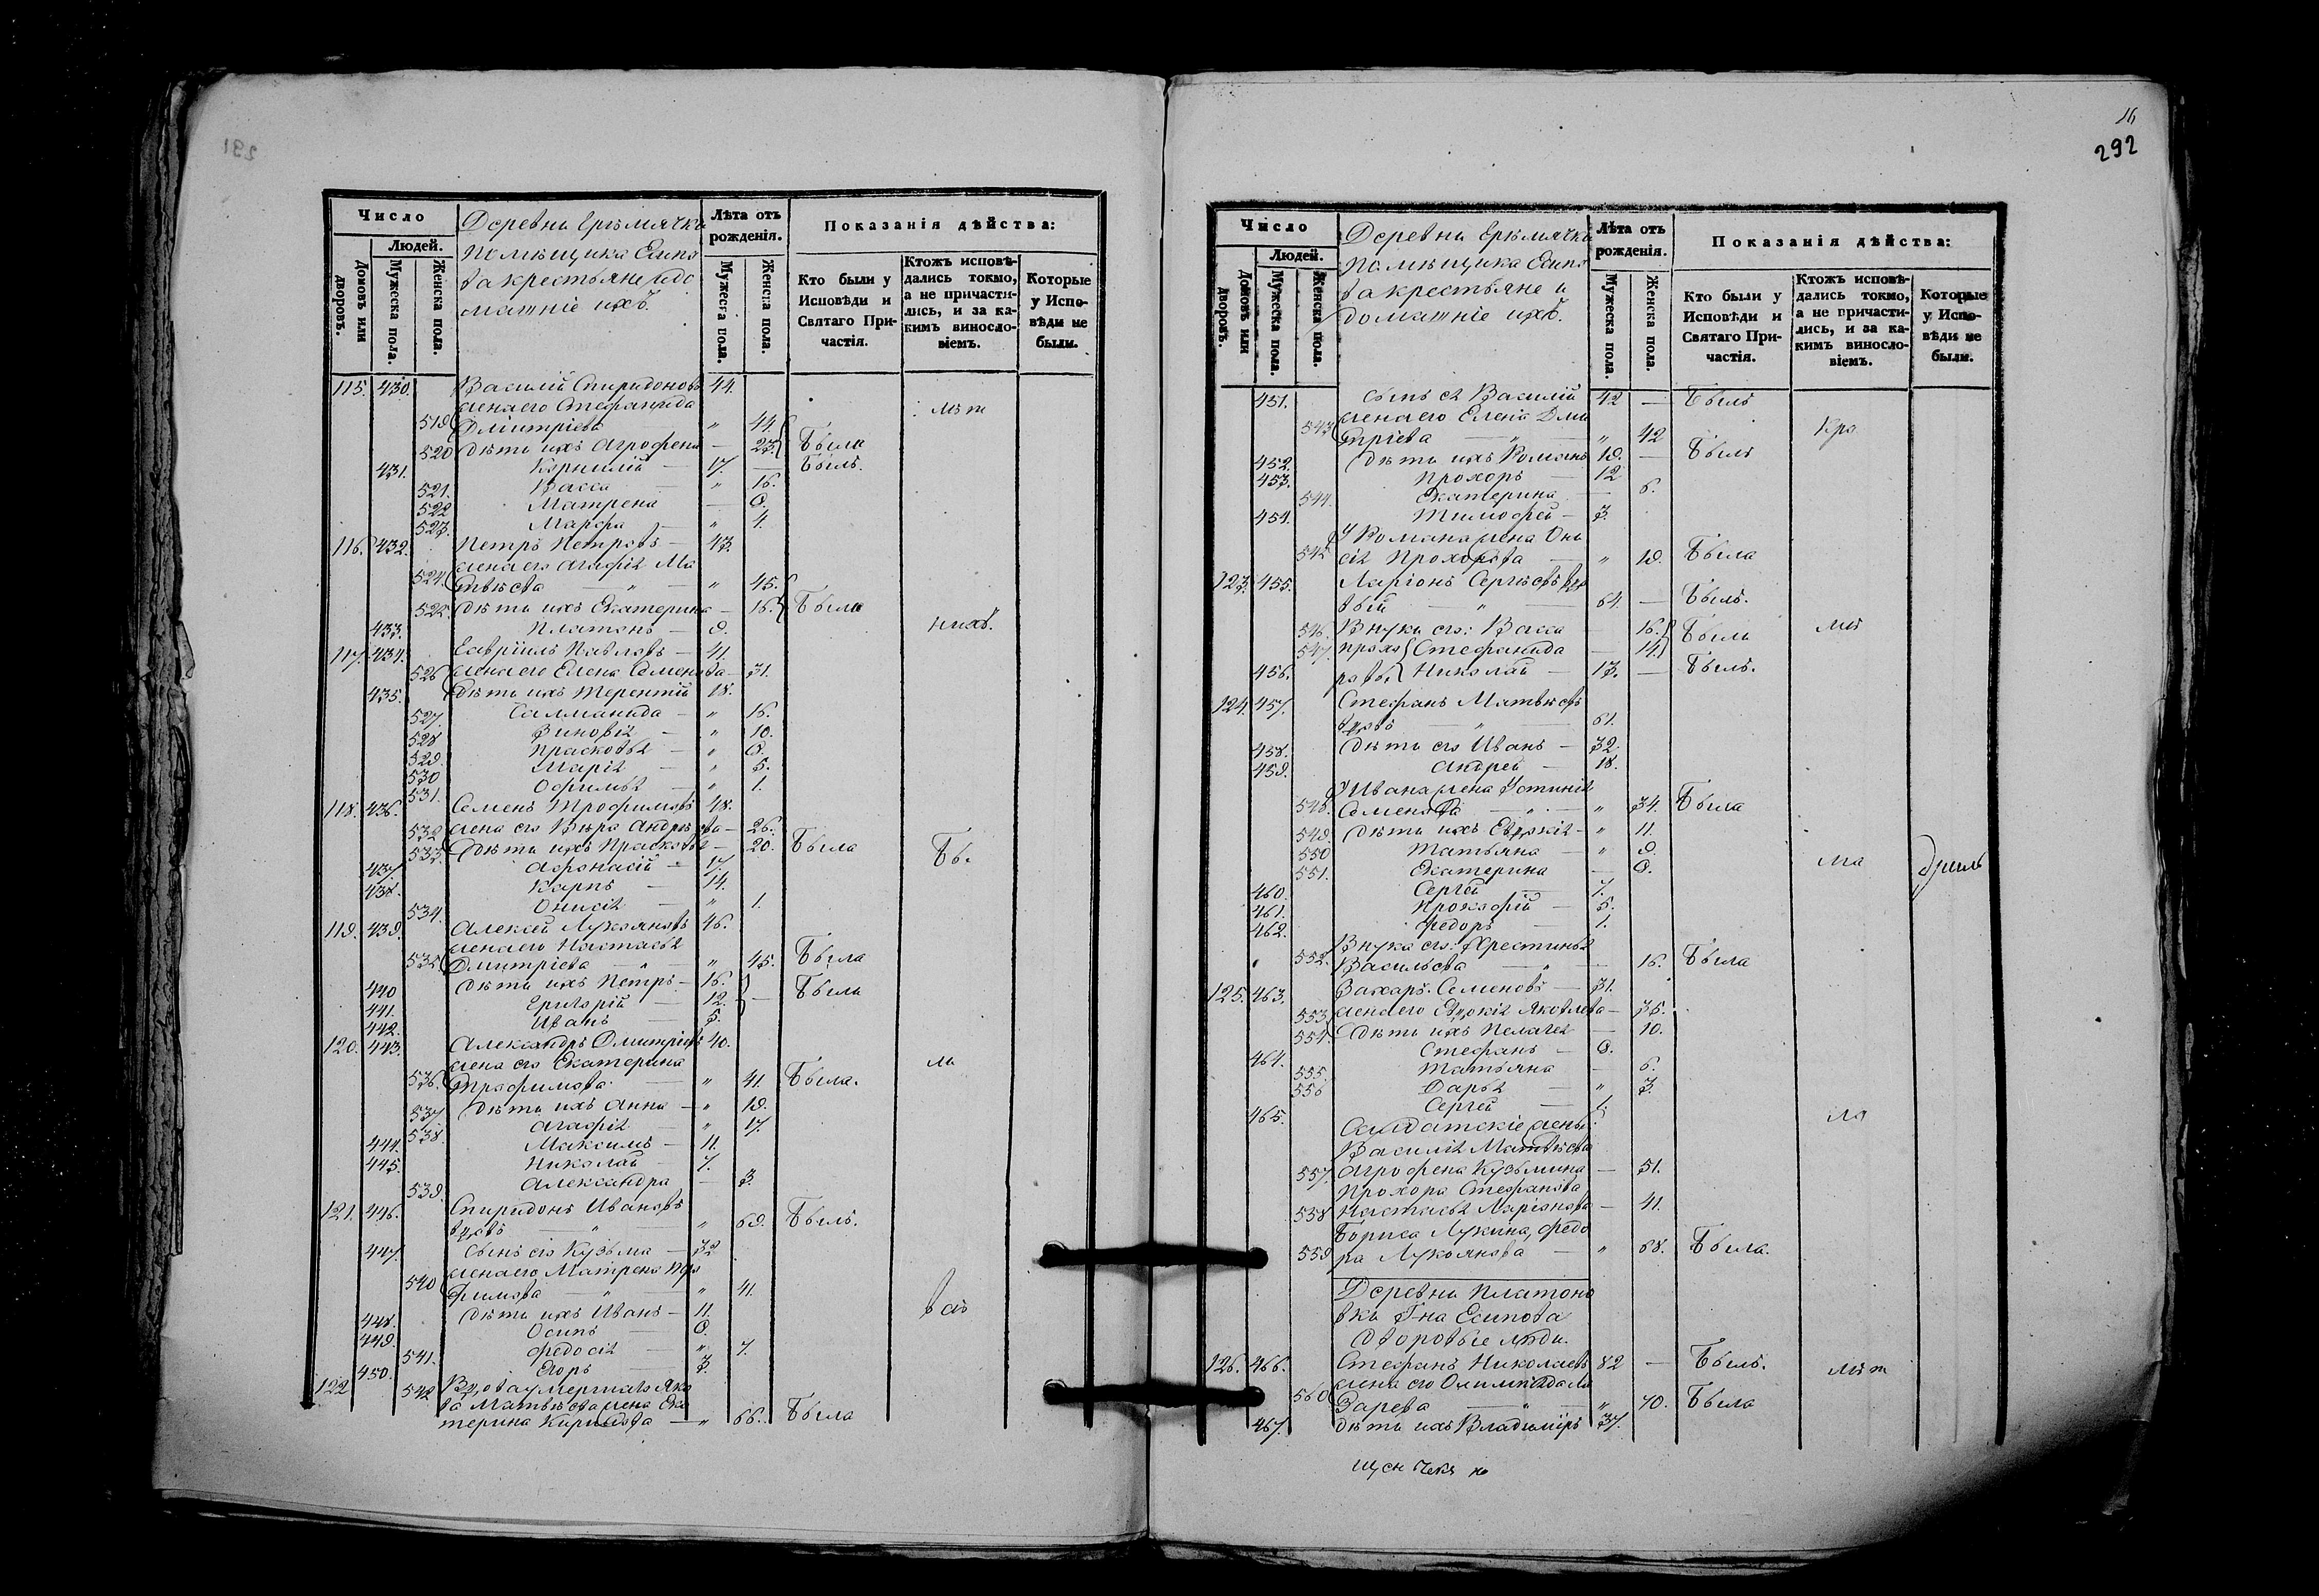 291
Число
Людей.
Домовъ или дворовъ.
Мужеска пола.
Женска пола.
Деревни Ерѣмячка
Помѣщика Есипо
ва крестьяне и до
машніе ихъ.
Лѣта отъ рожденія.
Мужеска пола.
Женска пола.
Показанія дѣйства:
Кто были у Исповѣди и Святаго Причастія.
Ктожъ исповѣдались токмо, а не причастились, и за какимъ винословіемъ.
Которые у Исповѣди не были.
115. 430. Василій Спиридоновъ 44.
жена его Стефанида
519 Дмитріева " 44.
520 дѣти ихъ Агрофена — 23. Была
431. Корнилій — 17. — Былъ.
521. Васса — " 16.
522 Матрена — 8.
523. Марфа — " 4.
116. 432. Петръ Петровъ — 43.
жена его Агафія Ма
524. твѣева — " — " 45.
525. дѣти ихъ Екатерина — 16. Были
433. Платонъ — 9.
117. 434. Гавріилъ Павловъ — 41.
526 жена его Елена Семенова — 31.
435. дѣти ихъ Терентій 18.
527. Саламанида — " 16.
528 Зиновія — " 10.
529. Прасковья — " 8.
530 Марія — " 5.
531. Офимья — " 1.
118. 436. Семенъ Трофимовъ 48.
532 жена его Вѣра Андрѣева — 26.
533. Дѣти ихъ Прасковья — 20. Была
437. Афонасій — 17.
438. Карпъ — 14.
534. Онисія — " 1.
119. 439. Алексій Лукояновъ 46.
жена его Настасья
535 Дмитріева — " — " 45. Была
440 дѣти ихъ Петръ — 16. Были
441. Григорій — 12.
442. Иванъ — 5.
120. 443. Александръ Дмитріевъ 40.
жена его Екатерина
536. Трофимова. — " 41. Была.
537 дѣти ихъ Анна — " 19.
538. Агафія — " 17.
444. Максимъ — 11.
445. Николай 7.
539. Александра — 3.
121. 446. Спиридонъ Ивановъ
вдовъ " " 69. Былъ.
447. Сынъ его Кузьма — 32
жена его Матрена
540 фимова — " — " 41.
448. дѣти ихъ Иванъ — 11.
449. Осипъ — 8.
541. Федосія — " 7.
450. Егоръ — 3.
122 542 Вдова умершаго Яко
ва Матвѣева жена Ека
терина Карпова — " 66. Была
292
Число
Людей.
Домовъ или дворовъ.
Мужеска пола.
Женска пола.
Деревни Ерѣмячка
Помѣщика Есипо
ва крестьяне и
домашніе ихъ.
Лѣта отъ рожденія.
Мужеска пола.
Женска пола.
Показанія дѣйства:
Кто были у Исповѣди и Святаго Причастія.
Ктожъ исповѣдались токмо, а не причастились, и за какимъ винословіемъ.
Которые у Исповѣди не были.
451. сынъ ея Василій 42 — Былъ
жена его Елена Дми
543 тріева — " — " 42
452. Дѣти ихъ Романъ 19. — Былъ
453. Прохоръ — 12
544. Екатерина — 6.
454. Тимофей — 3.
У Романа жена Они
545 сія Прохорова — " 19. Была
123. 455. Ларіонъ Сергѣевъ вдо
вый — " — 64. — Былъ.
546. Внуки его: Васса — 16. Были
547. Прохо Стефанида — 14.
456. ровы Николай — 13. — Былъ.
124. 457. Стефанъ Матвѣевъ
вдовъ — " — 61.
458. Дѣти его Иванъ — 32.
459. Андрей — 18.
У Ивана жена Фотинія
548. Семенова — " — " 34. Была
549. Дѣти ихъ Евдокія — " 11.
550 Татьяна — " 9.
551. Екатерина — 8.
460. Сергѣй — 7.
461. Прокофій — 5.
462. Федоръ — 1.
Внука его: Христинья
552. Васильева — " — 16. Была
125. 463. Захаръ Семеновъ — 31.
553. жена его Евдокія Яковлева — 35.
554. Дѣти ихъ Пелагея — 10.
464. Стефанъ — 8.
555. Татьяна — 6.
556 Дарья — " 3.
465. Сергей — 1.
Салдатскіе жены:
Василія Матвѣева
557. Агрофена Кузьмина — 51.
Прохора Стефанова
558 Настасья Ларіонова — 41.
Бориса Лукина, Федо
559 ра Лукоянова — " 68. Была.
Деревни Платоно
вки Г-на Есипова
дворовые люди.
126. 466. Стефанъ Николаевъ 82 — Былъ.
жена его Олимпіада Ла
560 зарева — " — " 70. Была
467. дѣти ихъ Владиміръ 37.